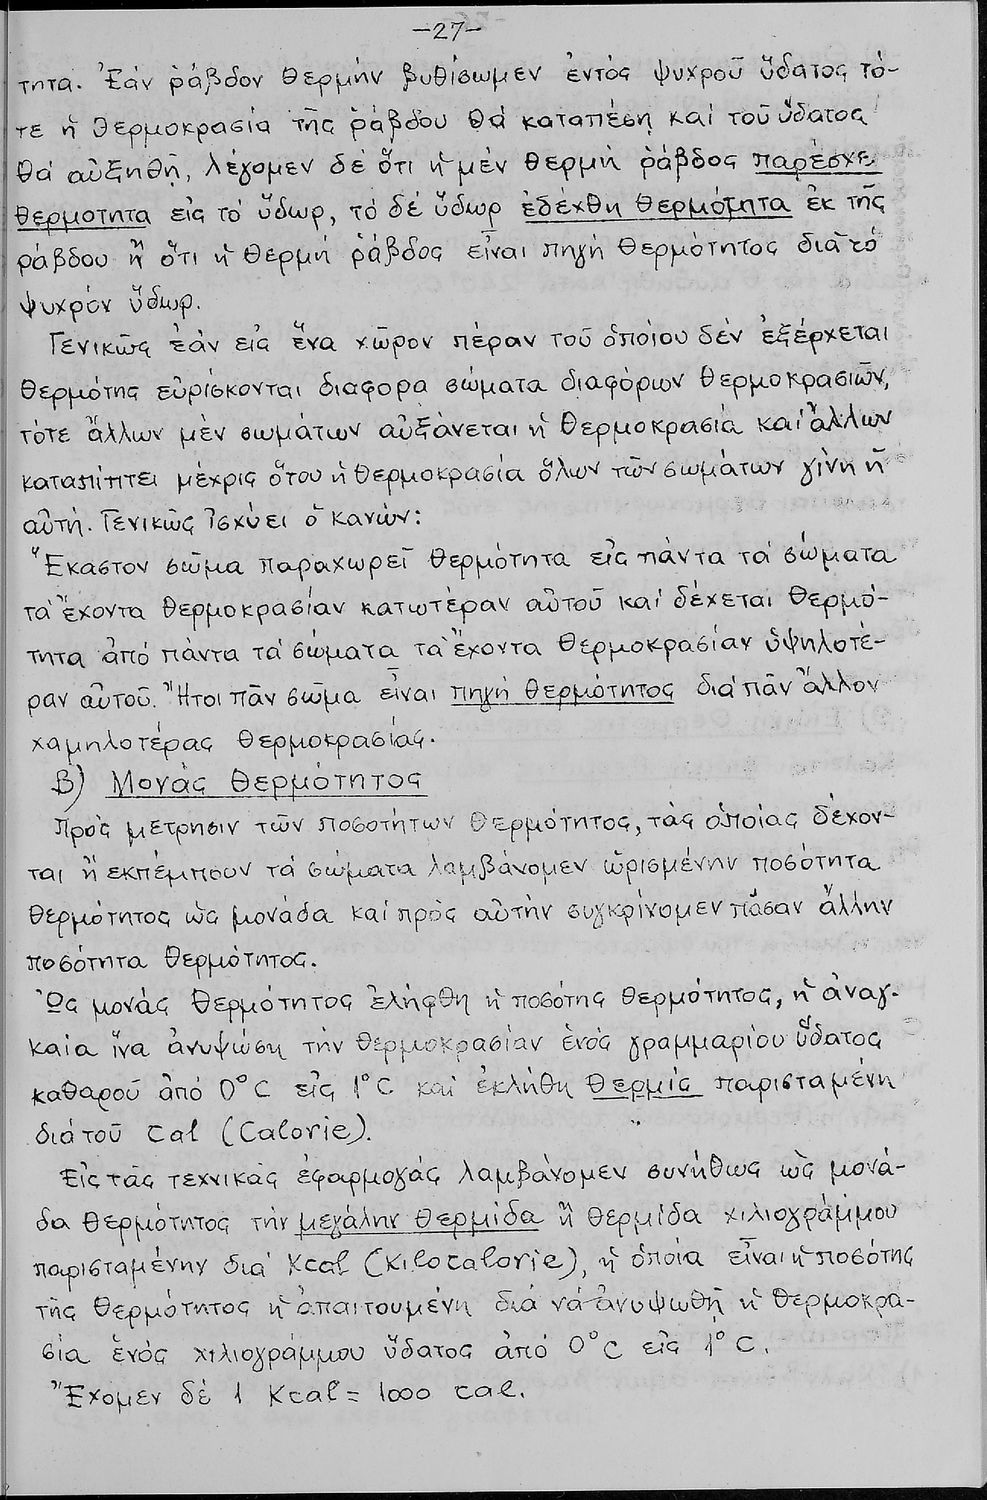 -27-
τητα. Ἐάν ράβδον θερμήν βυθίσωμεν ἐντός ψυχροῦ ὕδατος τό-
τε ἡ θερμοκρασία τῆς ράβδου θά καταπέσῃ καί τοῦ ὕδατος
θά αὐξηθῇ, λέγομεν δέ ὅτι ἡ μέν θερμή ράβδος παρέσχε
θερμοτητα εἰς τό ὕδωρ, τό δέ ὕδωρ ἐδέχθη θερμότητα ἐκ τῆς
ράβδου ἤ ὅτι ἡ θερμή ράβδος εἶναι πηγή θερμότητος διά τό
ψυχρόν ὕδωρ.
Γενικῶς ἐάν εἰς ἕνα χῶρον πέραν τοῦ ὁποίου δέν ἐξέρχεται
θερμότης εὑρίσκονται διαφορα σώματα διαφόρων θερμοκρασιῶν,
τότε ἄλλων μέν σωμάτων αὐξάνεται ἡ θερμοκρασία καί ἄλλων
καταπίπτει μέχρις ὅτου ἡ θερμοκρασία ὅλων τῶν σωμάτων γίνη ἡ
αὐτή. Γενικῶς ἰσχύει ὁ κανών:
Ἕκαστον σῶμα παραχωρεῖ θερμότητα εἰς πάντα τά σώματα
τά ἔχοντα θερμοκρασίαν κατωτέραν αὐτοῦ καί δέχεται θερμό-
τητα ἀπό πάντα τά σώματα τά ἔχοντα θερμοκρασίαν ὑψηλοτέ-
ραν αὐτοῦ. Ἤτοι πᾶν σῶμα εἶναι πηγή θερμότητος διά πᾶν ἄλλον
χαμηλοτέρας θερμοκρασίας.
Β) Μονάς θερμότητος
Πρός μέτρησιν τῶν ποσοτήτων θερμότητος, τάς ὁποίας δέχον-
ται ἤ εκπέμπουν τά σώματα λαμβάνομεν ὡρισμένην ποσότητα
θερμότητος ὡς μονάδα καί πρός αὐτήν συγκρίνομεν πᾶσαν ἄλλην
ποσότητα θερμότητος.
Ὡς μονάς θερμότητος ἐλήφθη ἡ ποσότης θερμότητος, ἡ ἀναγ-
καία ἵνα ἀνυψώση τήν θερμοκρασίαν ἑνός γραμμαρίου ὕδατος
καθαροῦ ἀπό 0°C εἰς 1°C καί ἐκλήθη θερμίς παρισταμένη
διά τοῦ cal (Calorie).
Εἰς τάς τεχνικάς ἐφαρμογάς λαμβάνομεν συνήθως ὡς μονά-
δα θερμότητος τήν μεγάλην θερμίδα ἤ θερμίδα χιλιογράμμου
παρισταμένην διά Kcal (Kilocalorie), ἡ ὁποία εἶναι ἡ ποσότης
τῆς θερμότητος ἡ ἀπαιτουμένη διά νά ἀνυψωθῇ ἡ θερμοκρα-
σία ἑνός χιλιογράμμου ὕδατος ἀπό 0°C εἰς 1°C.
Ἔχομεν δέ 1 Kcal = 1000 cal.